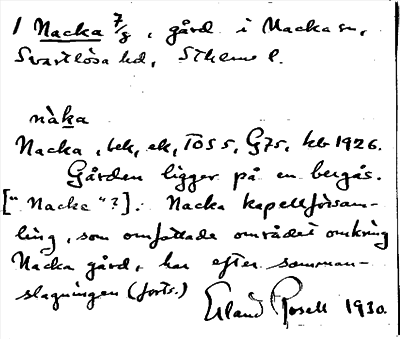 1 Nacka 7/8, gård i Nacka sn,
Svartlösa hd, Sthlms l.
nàka
Nacka, bek, ek, TOS 5, G75, kb 1926.
Gården ligger på en bergås.
["Nacka"?]. Nacka kapellförsam-
ling, som omfattade området omkring
Nacka gård, har efter samman-
slagningen (forts.)
Erland Rosell 1930.